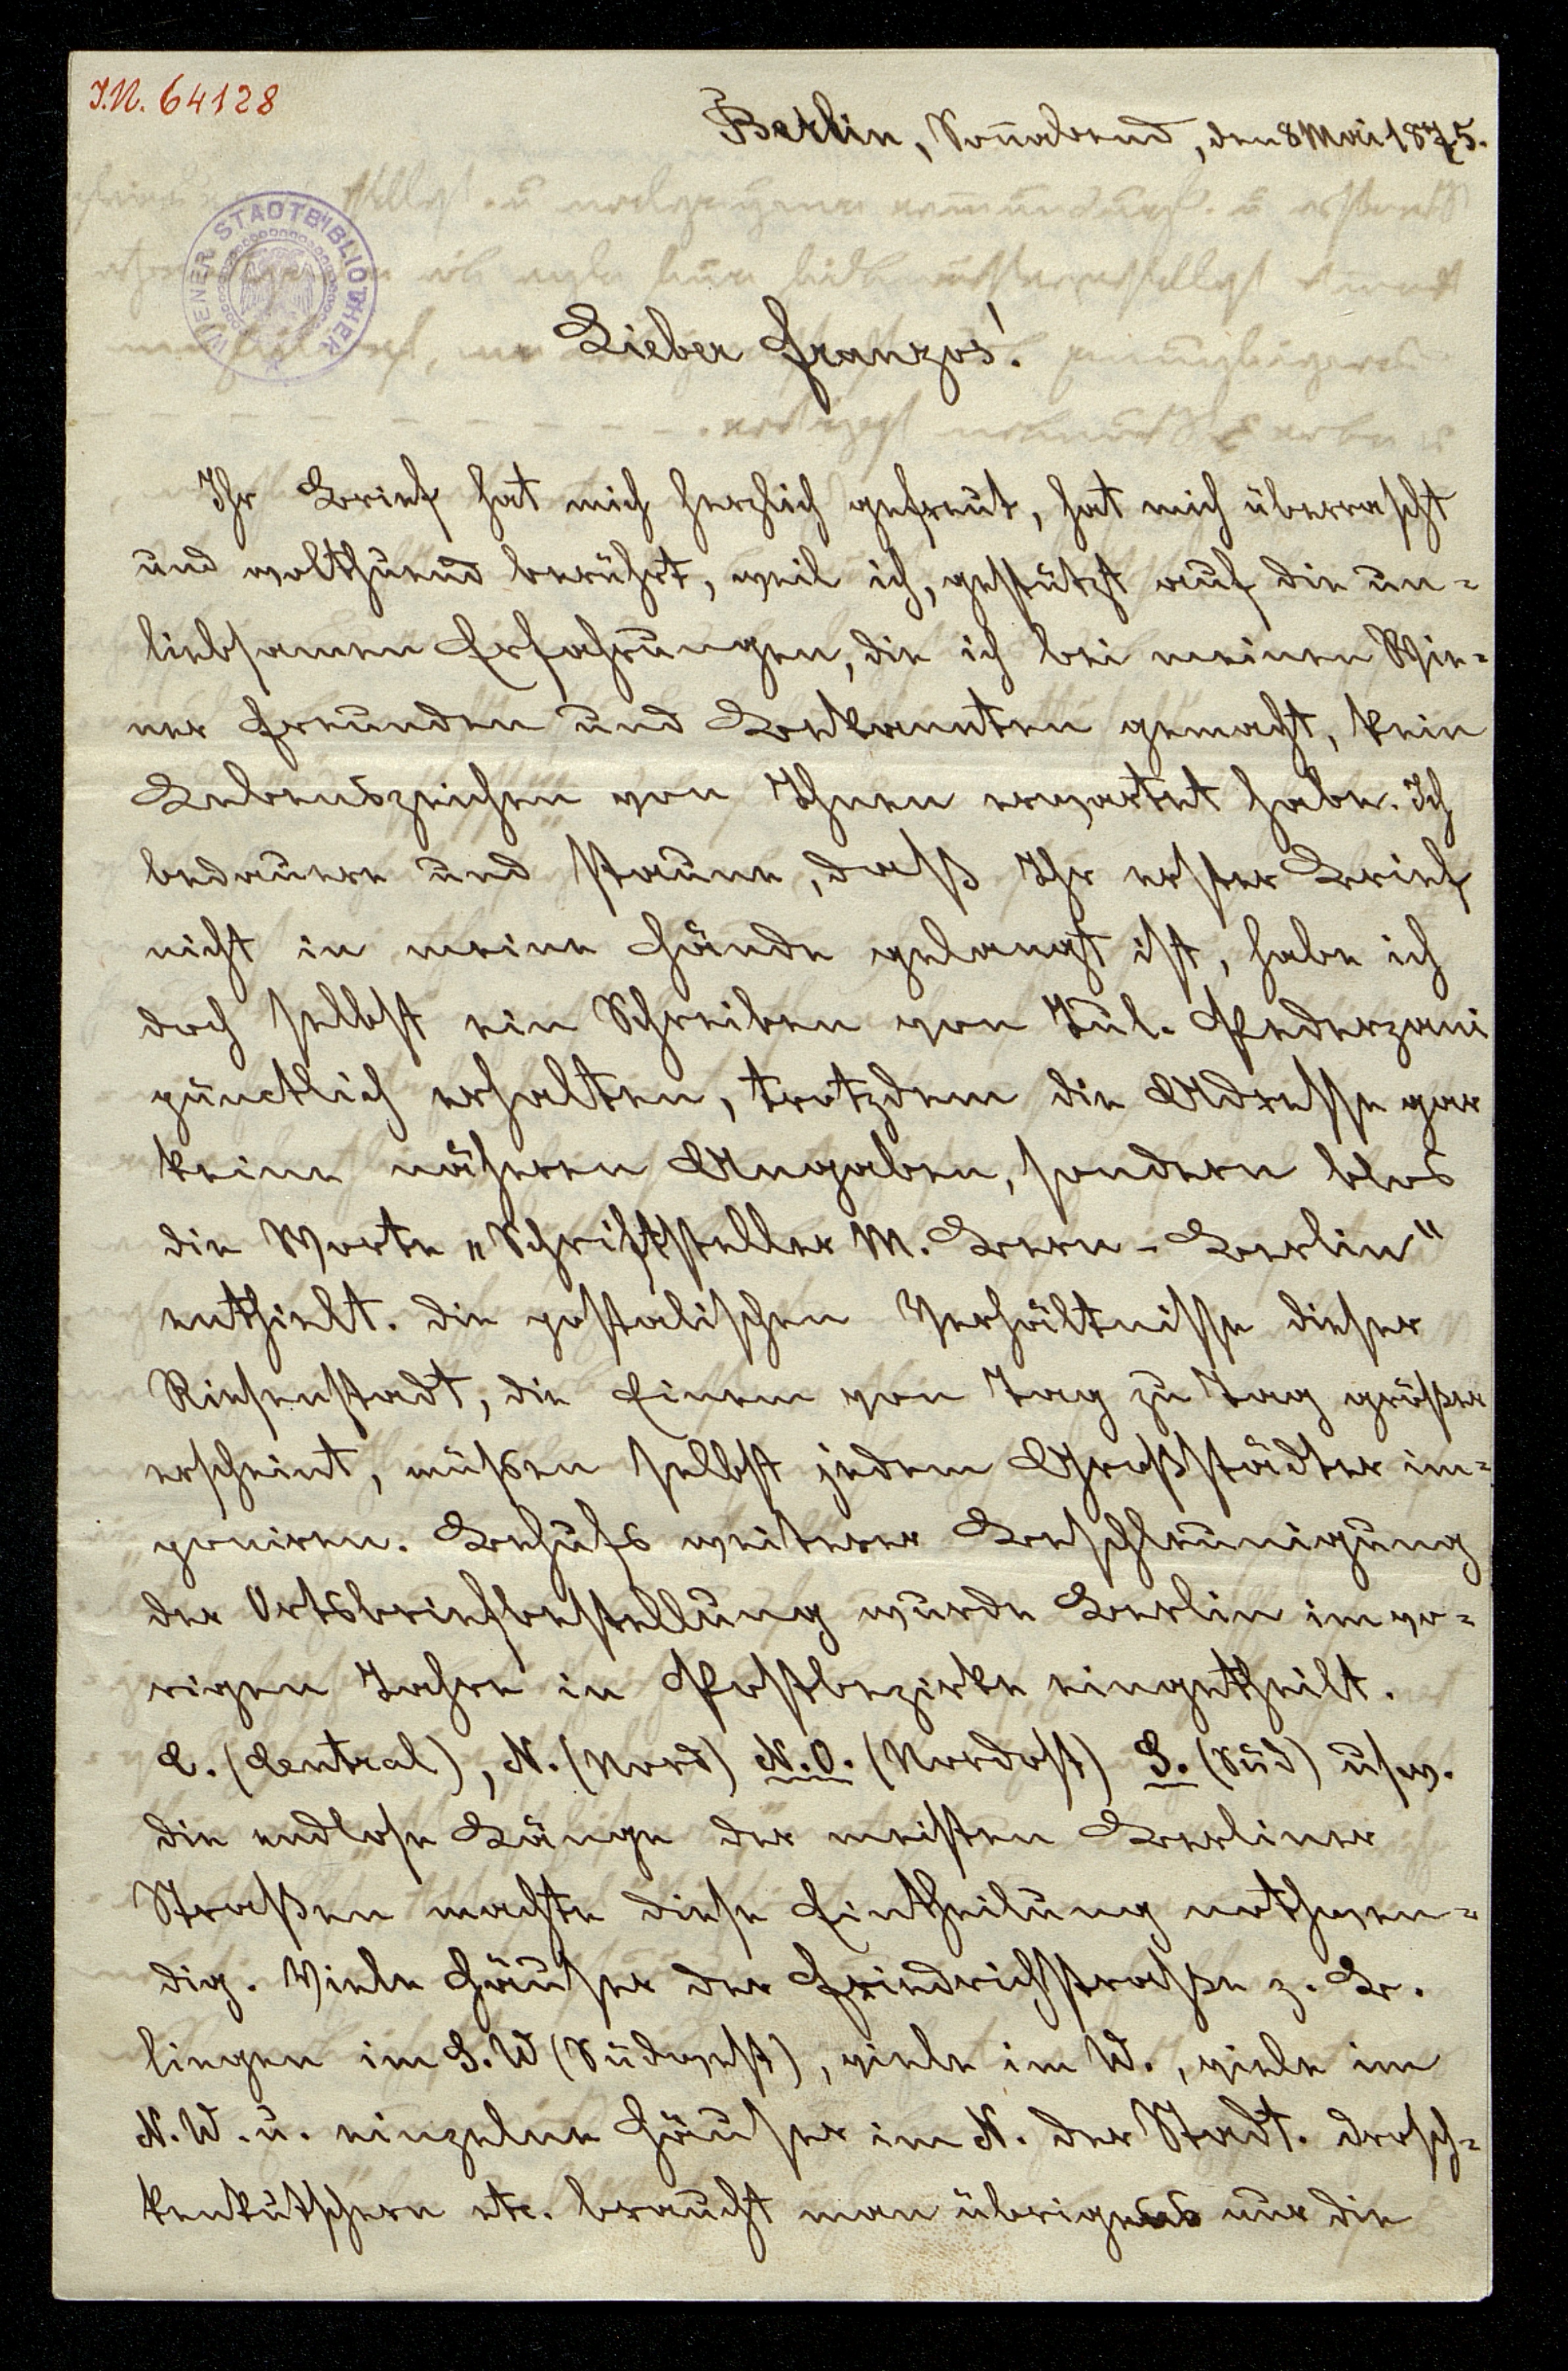 I.N. 64128
Berlin, Soñabend, den 8 Mai 1875.
WIENER STADTBIBLIOTHEK
Lieber Franzos!
Ihr Brief hat mich herzlich gefreut, hat mich überrascht
und wolthuend berührt, weil ich, gestützt auf die un-
liebsamen Erfahrungen, die ich bei meinen Wie-
ner Freunden und Bekannten gemacht, kein
Lebenszeichen von Ihnen erwartet habe. Ich
bedauere und staune, daß Ihr erster Brief
nicht in meine Hände gelangt ist, habe ich
doch selbst ein Schreiben von Jul. Pederzani
pünctlich erhalten, trotzdem die Adresse gar
keine näheren Angaben, sondern blos
die Worte „Schriftsteller M. Bern - Berlin"
enthielt. Die postalischen Verhältnisse dieser
Riesenstadt, die Einem von Tag zu Tag größer
erscheint, müßen selbst jedem Großstädter im-
poniren. Behufs weiterer Beschleunigung
der Ortsbriefbestellung wurde Berlin im vo-
rigen Jahre in Postbezirke eingetheilt.
C. (Central), N. (Nord) N.O. (Nordost) S. (Süd) usw.
Die endlose Länge der meisten Berliner
Straßen machte diese Eintheilung nothwen-
dig. Viele Häuser der Friedrichstraße z. B.
liegen im S.W (Südwest), viele im W., viele im
N.W. u. einzelne Häuser im N. der Stadt. Drosch-
kenkutschern etc. braucht man übrigens nur die